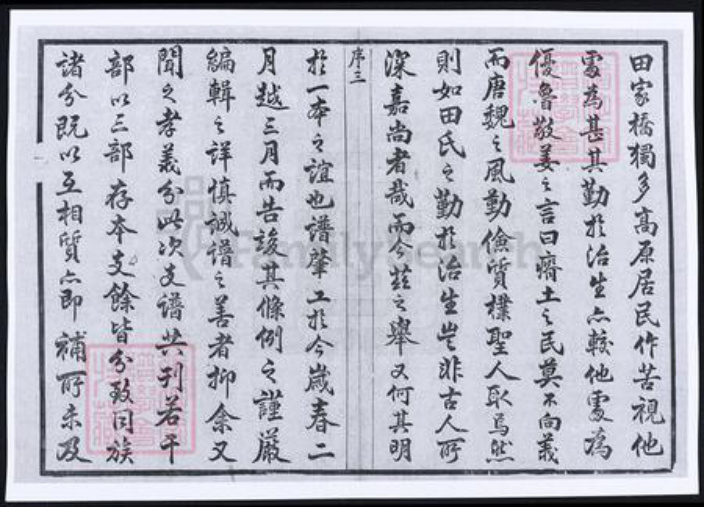 田家橋獨多高原居民作苦視他
處為甚其勤於治生亦較他處為
優魯敬姜之言曰瘠土之民莫不向義
而唐魏之風勤儉質樸聖人取焉然
則如田氏之勤於治生豈非古人所
深嘉尚者哉而今茲之舉又何其明
序三
於一本之誼也譜肇工於今歲春二
月越三月而告竣其條例之謹嚴
編輯之詳慎誠譜之善者抑余又
聞之孝義分此次支譜共刊若干
部以三部存本支餘皆分致同族
諸分既以互相質亦即補所未及
FamilySearch